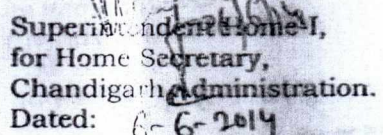 Superintendent Home-I,
for Home Secretary,
Chandigarh Administration.
Dated: 6-6-2014